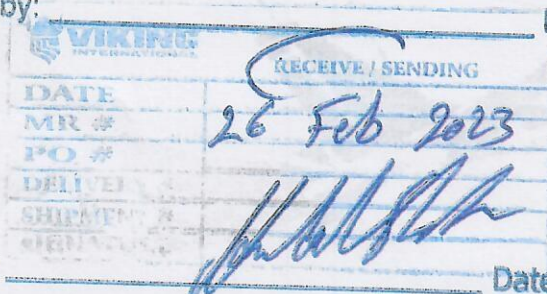 by:
VIKING
INTERNATIONAL
RECEIVE / SENDING
DATE
MR #
26 Feb 2023
PO #
DELIVERY #
SHIPMENT #
Date